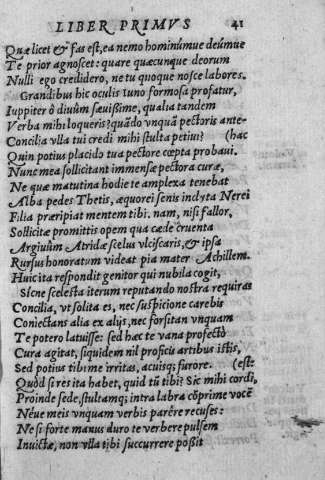 LIBER PRIMVS 41
Quæ licet & fas est, ea nemo hominúmue deúmue
Te prior agnoscet: quare quæcunque deorum
Nulli ego credidero, ne tu quoque nosce labores.
Grandibus hic oculis Iuno formosa profatur,
Iuppiter ô diuûm sæuissime, qualia tandem
Verba mihi loqueris? quãdo vnquã pectoris ante-
Concilia vlla tui credi mihi stulta petiui? (hac
Quin potius placido tua pectore cœpta probaui.
Nunc mea sollicitant immensæ pectora curæ,
Ne quæ matutina hodie te amplexa tenebat
Alba pedes Thetis, æquorei senis inclyta Nerei
Filia præripiat mentem tibi. nam, nisi fallor,
Sollicitæ promittis opem qua cæde cruenta
Argiuûm Atridæ scelus vlciscaris, & ipsa
Rursus honoratum videat pia mater Achillem.
Huic ita respondit genitor qui nubila cogit,
Sícne scelesta iterum reputando nostra requiras
Concilia, vt solita es, nec suspicione carebis
Coniectans alia ex alijs, nec forsitan vnquam
Te potero latuisse: sed hæc te vana profectò
Cura agitat, siquidem nil proficis artibus istis,
Sed potius tibi me irritas, acuisq; furore. (est:
Quòd si res ita habet, quid tũ tibi? Sic mihi cordi,
Proinde sede, stultamq; intra labra cõprime vocẽ
Néue meis vnquam verbis parêre recuses:
Ne si forte manus duro te verbere pulsem
Inuictæ, non vlla tibi succurrere poßit